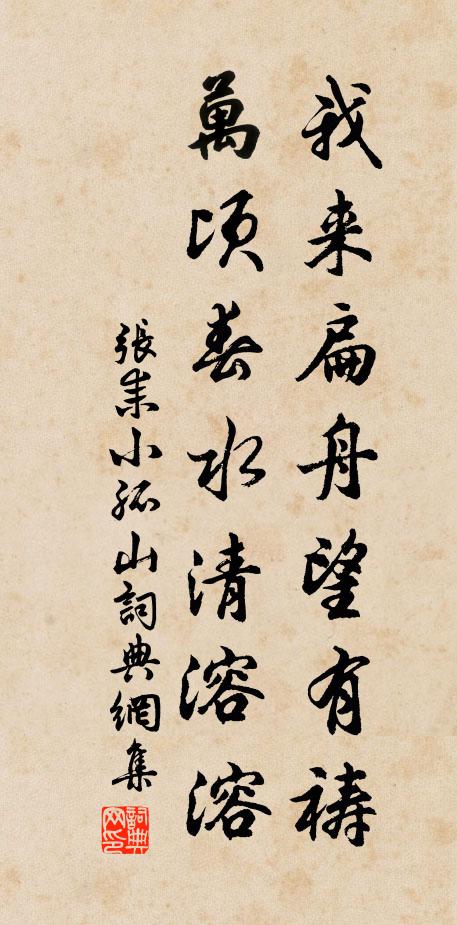 我来扁舟望有祷
萬頃春水清溶溶
張耒小孤山詞典網集
詞典网印